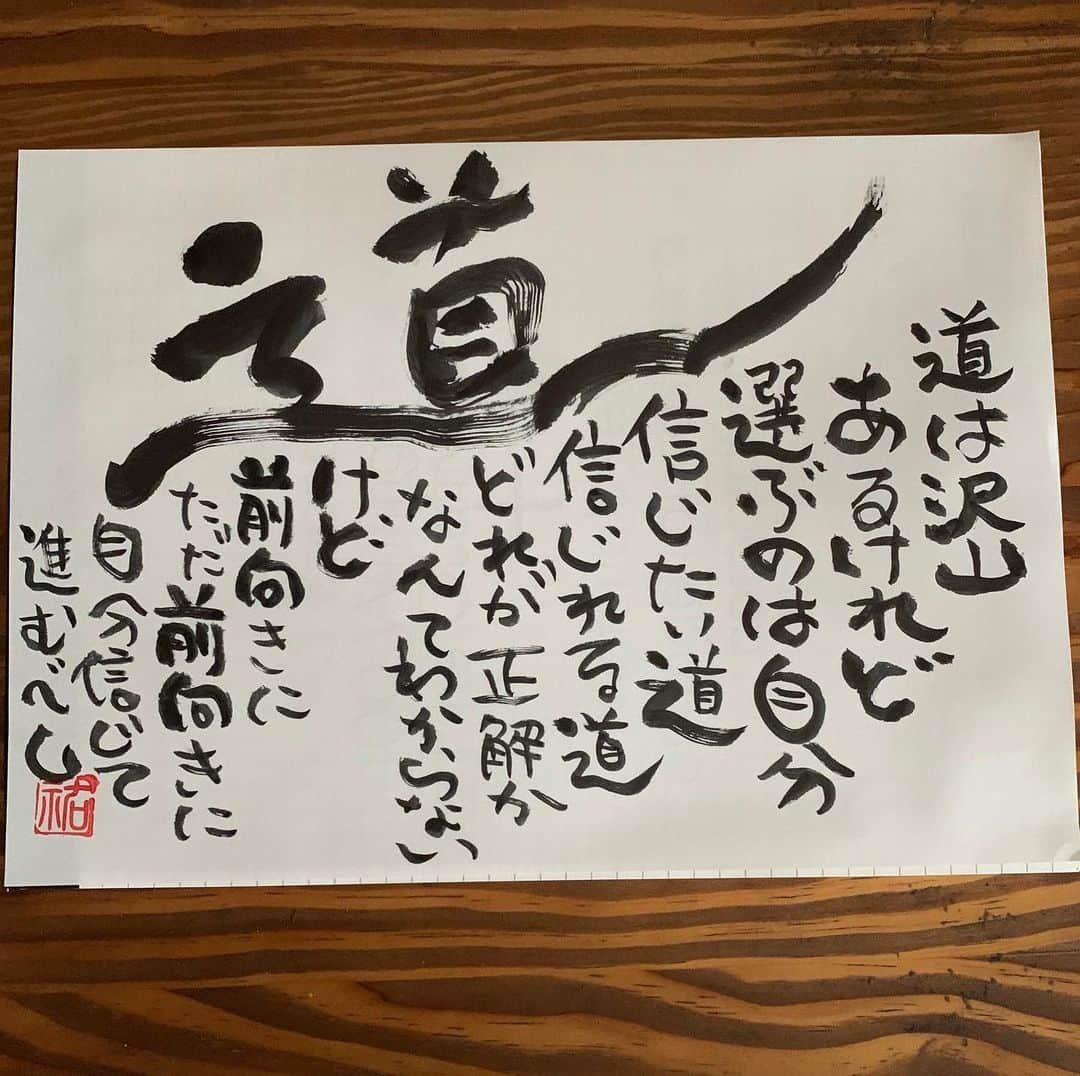 道
道は沢山
あるけれど
選ぶのは自分
信じたい道
信じれる道
どれが正解か
なんてわからない
けど
前向きに
ただ前向きに
自分信じて
進むべし
祐